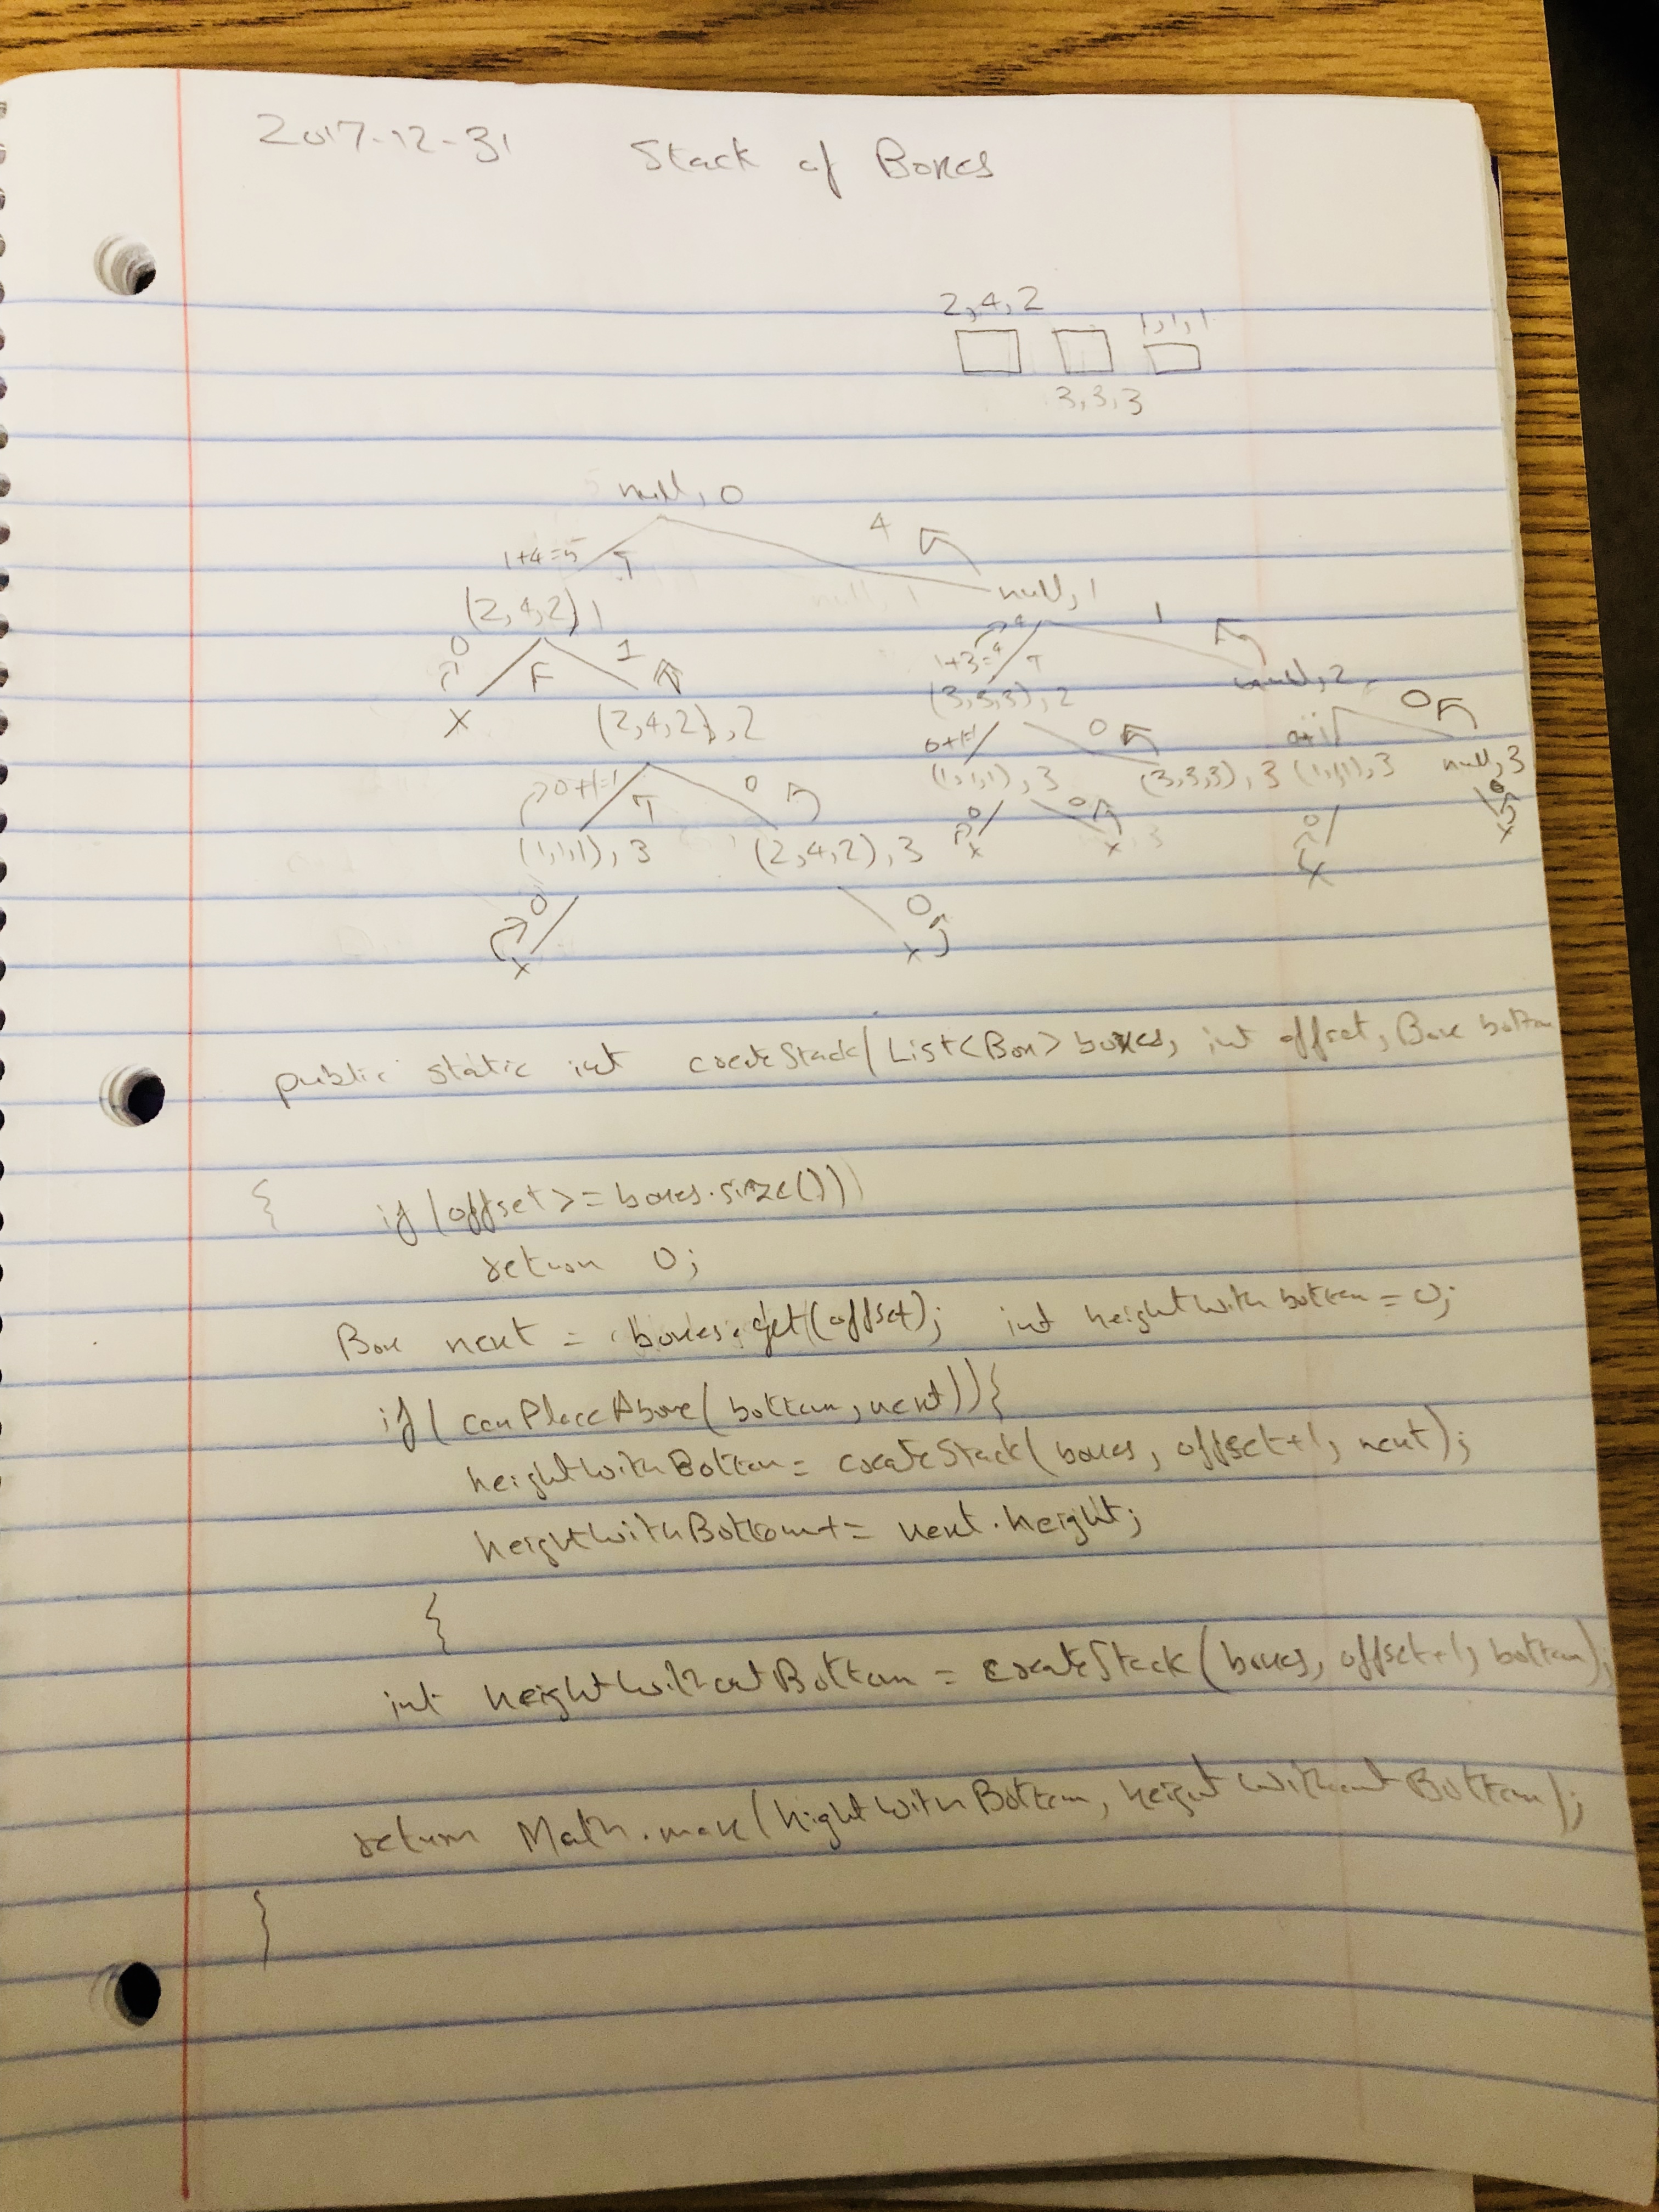 2017-12-31 Stack of Boxes
2,4,2 1,1,1
3,3,3
null, 0
4
1+4=5 T
null, 1
(2,4,2) 1
1
0 F 1
1+3=4 T
null, 2
x (2,4,2), 2
(3,3,3), 2
0
0+1=1 0
0+1
0+1=1 T 0
(1,1,1), 3 (3,3,3), 3 (1,1,1), 3 null, 3
(1,1,1), 3 (2,4,2), 3
0 0 0 0
x x x x
0 0
x x
public static int createStack(List<Box> boxes, int offset, Box bottom
{ if (offset >= boxes.size())
return 0;
Box next = boxes.get(offset); int heightWithbottom = 0;
if( canPlaceAbove( bottom, next)){
heightWithBottom = createStack( boxes, offset+1, next);
heightWithBottom += next.height;
}
int heightWithoutBottom = createStack( boxes, offset+1, bottom);
return Math.max(hightWithBottom, heightWithoutBottom);
}